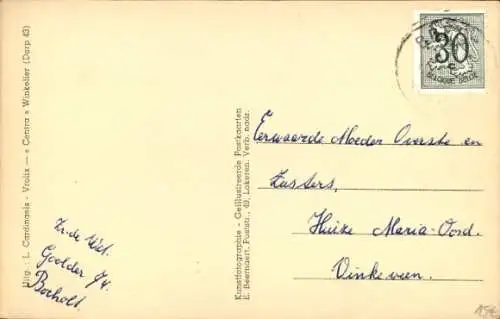 Uitg.: L. Cardinaels - Vrolix — « Centra » Winkelier (Dorp 43)
Kunstfotographie - Geïllustreerde Postkaarten
E. Beernaert, Poststr., 49, Lokeren. Verb. nadr.
30
BELGIQUE BELGIË
Eerwaarde Moeder Overste en
Zusters,
Huize Maria-Oord.
Vinkeveen.
Bocholt.